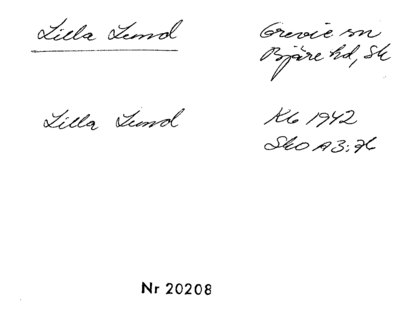 Lilla Lund
Grevie sn
Bjäre hd, Sk
Lilla Lund
Kb 1942
SkO A3:76
Nr 20208